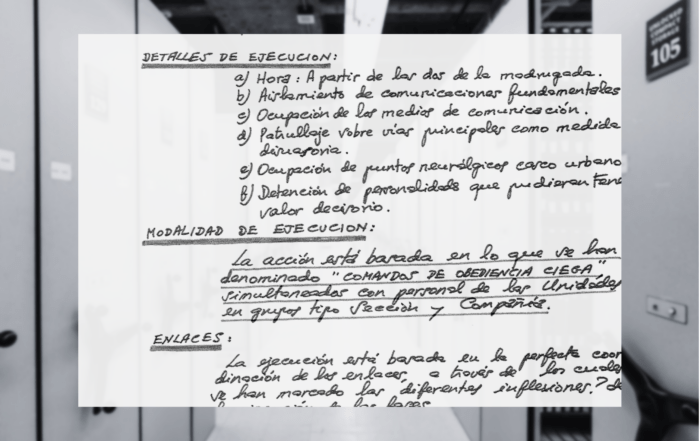 DETALLES DE EJECUCION:
a) Hora: A partir de las dos de la madrugada.
b) Aislamiento de comunicaciones fundamentales
c) Ocupación de los medios de comunicación.
d) Patrullaje sobre vías principales como medida
disuasoria.
e) Ocupación de puntos neurálgicos casco urbano
f) Detención de personalidades que pudieran
valor decisorio.
MODALIDAD DE EJECUCION:
La acción está basada en lo que se han
denominado "COMANDOS DE OBEDIENCIA CIEGA"
simultaneados con personal de las Unidades
en grupos tipo Sección y Compañía.
ENLACES:
La ejecución está basada en la perfecta coor
dinación de los enlaces, a través de los
se han marcado las diferentes inflexiones.
105